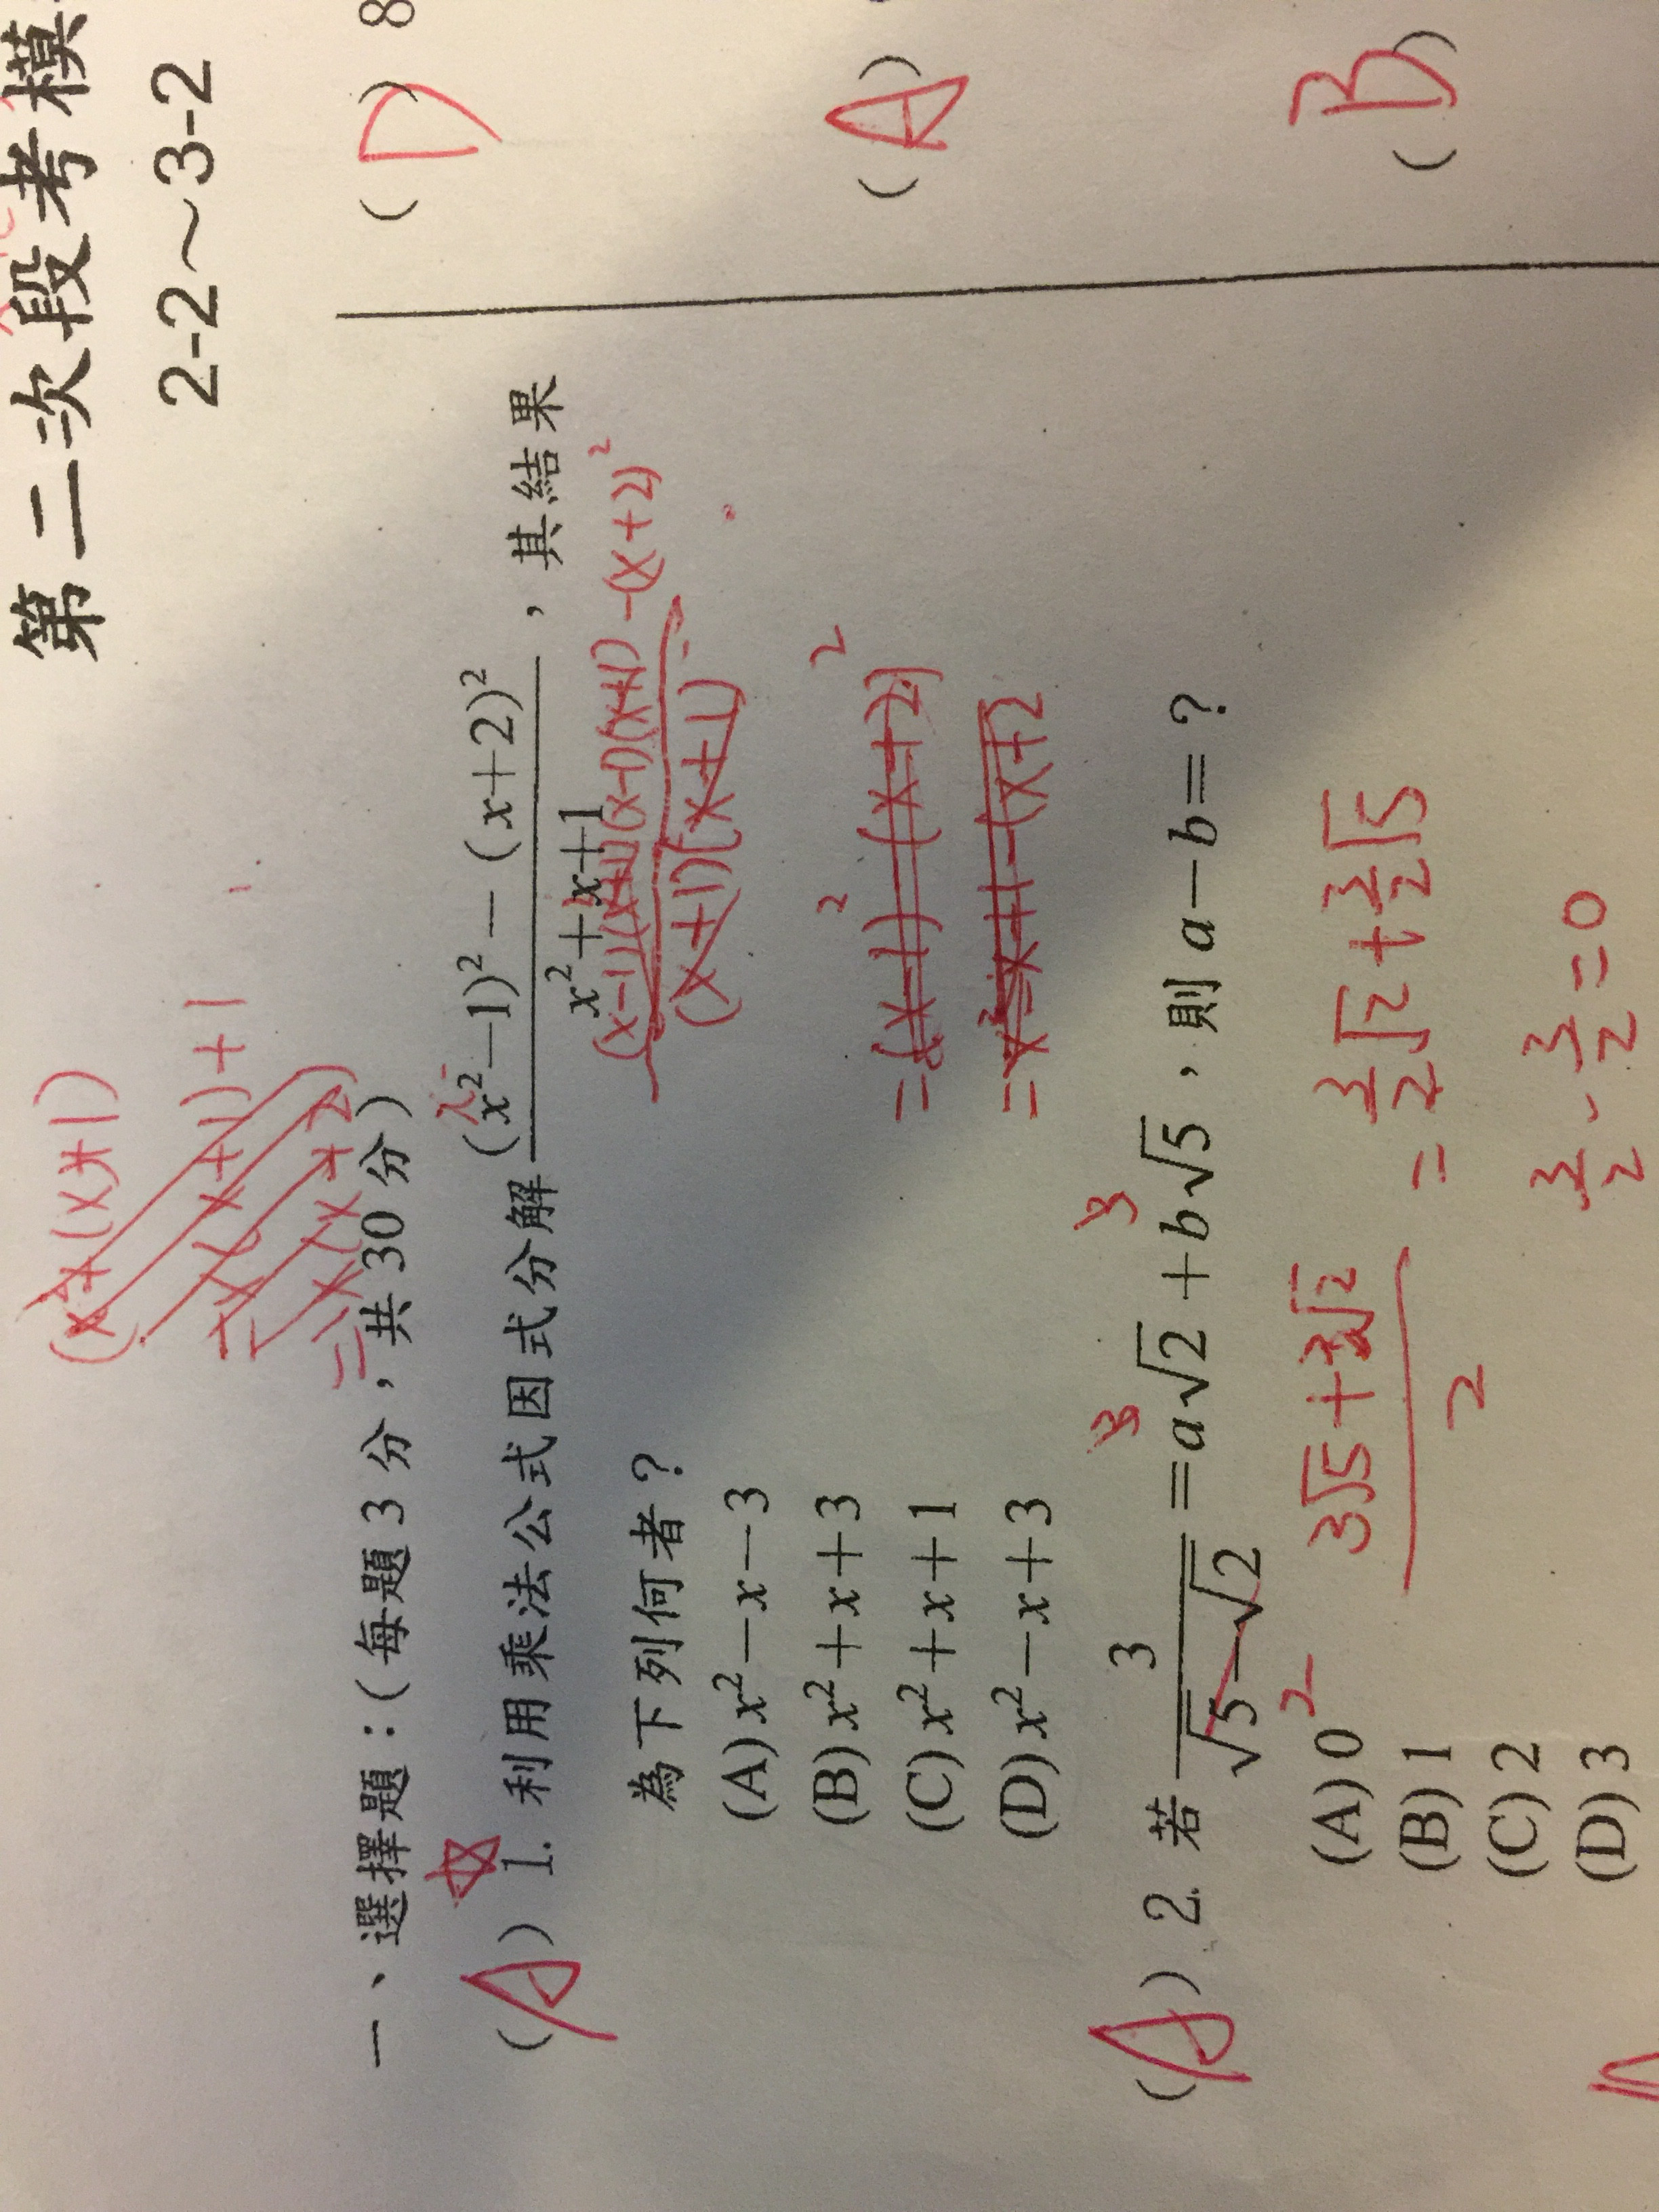 第二次段考模
2-2～3-2
一、選擇題：(每題3分，共30分)
(A) 1. 利用乘法公式因式分解 \frac{(x²-1)²-(x+2)²}{x²+x+1}，其結果
為下列何者？
(A) x²-x-3
(B) x²+x+3
(C) x²+x+1
(D) x²-x+3
(A) 2. 若 \frac{3}{√5-√2}=a√2+b√5，則a-b=？
3 3
\frac{3√5+3√2}{2}
= \frac{3}{2}√2+\frac{3}{2}√5
\frac{3}{2}-\frac{3}{2}=0
(A) 0
(B) 1
(C) 2
(D) 3
(D) 8
(A)
(B)